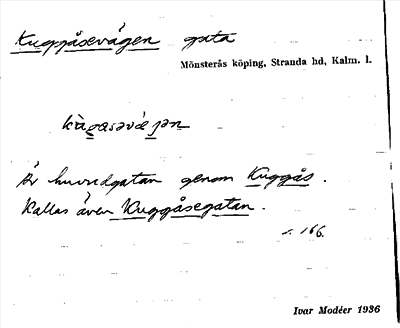 Kuggåsevägen gata
Mönsterås köping, Stranda hd, Kalm. l.
Är huvudgatan genom Kuggås.
Kallas även Kuggåsegatan.
s. 166.
Ivar Modéer 1936